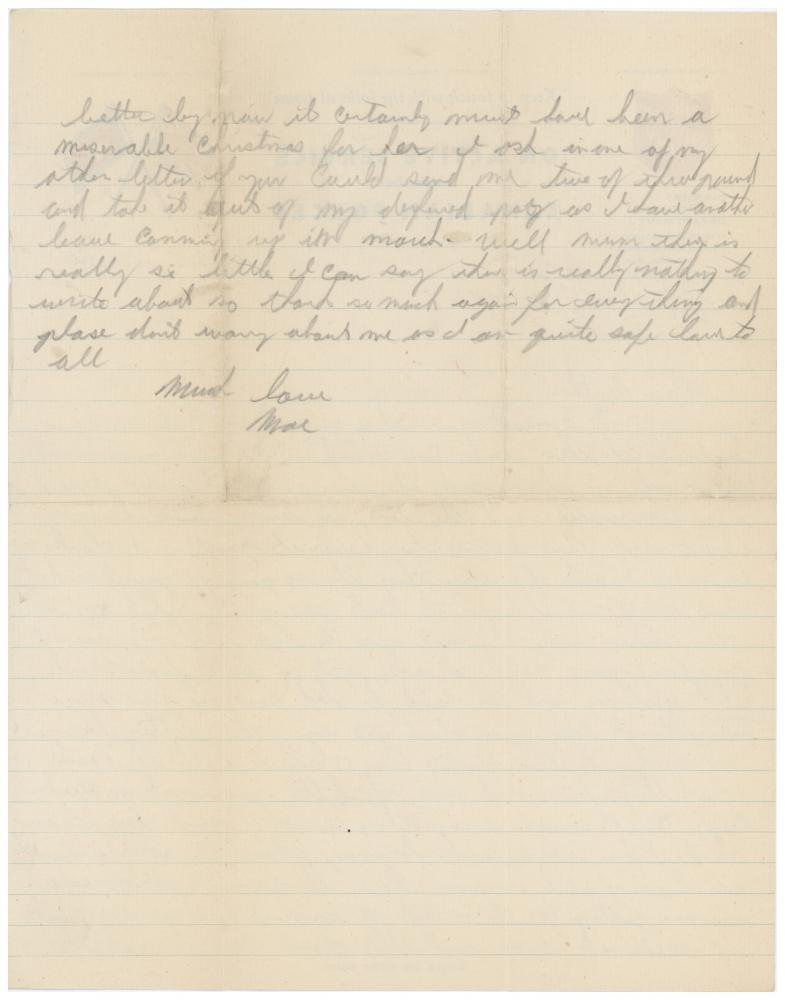 better by now it certainly must have been a
miserable Christmas for her I ask in one of my
other letter, if you could send me two of three pound
and take it out of my defured pay as I have another
leave comming up in march. Well mum ther is
really so little I can say ther is really nothing to
write about so thank so much again for everything and
please dont worry about me as I am quite safe love to
all
Much love